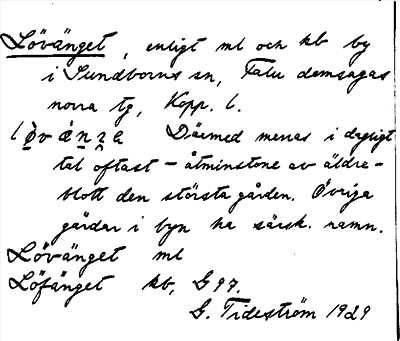 Lövänget, enligt ml och kb by
i Sundborns sn, Falu domsagas
norra tg, Kopp. l.
Därmed menas i dagligt
tal oftast – åtminstone av äldre –
blott den största gården. Övriga
gårdar i byn ha särsk. namn.
Lövänget ml
Löfänget kb, G97.
G. Tideström 1929